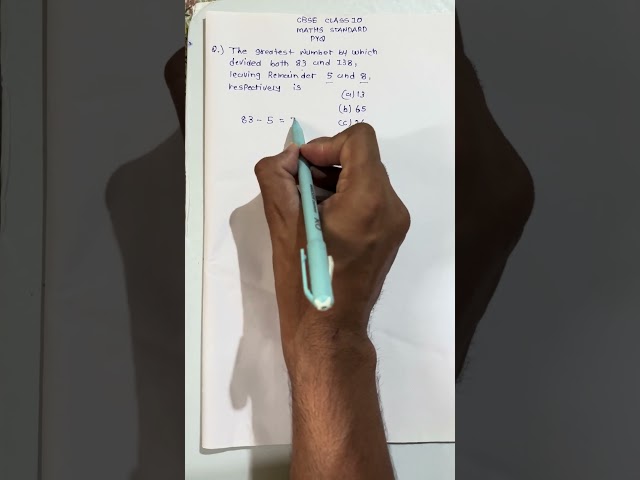 CBSE CLASS 10
MATHS STANDARD
PYQ
Q.) The greatest number by which
divided both 83 and 138,
leaving Remainder 5 and 8,
respectively is
(a) 13
(b) 65
(c)
83 - 5 =